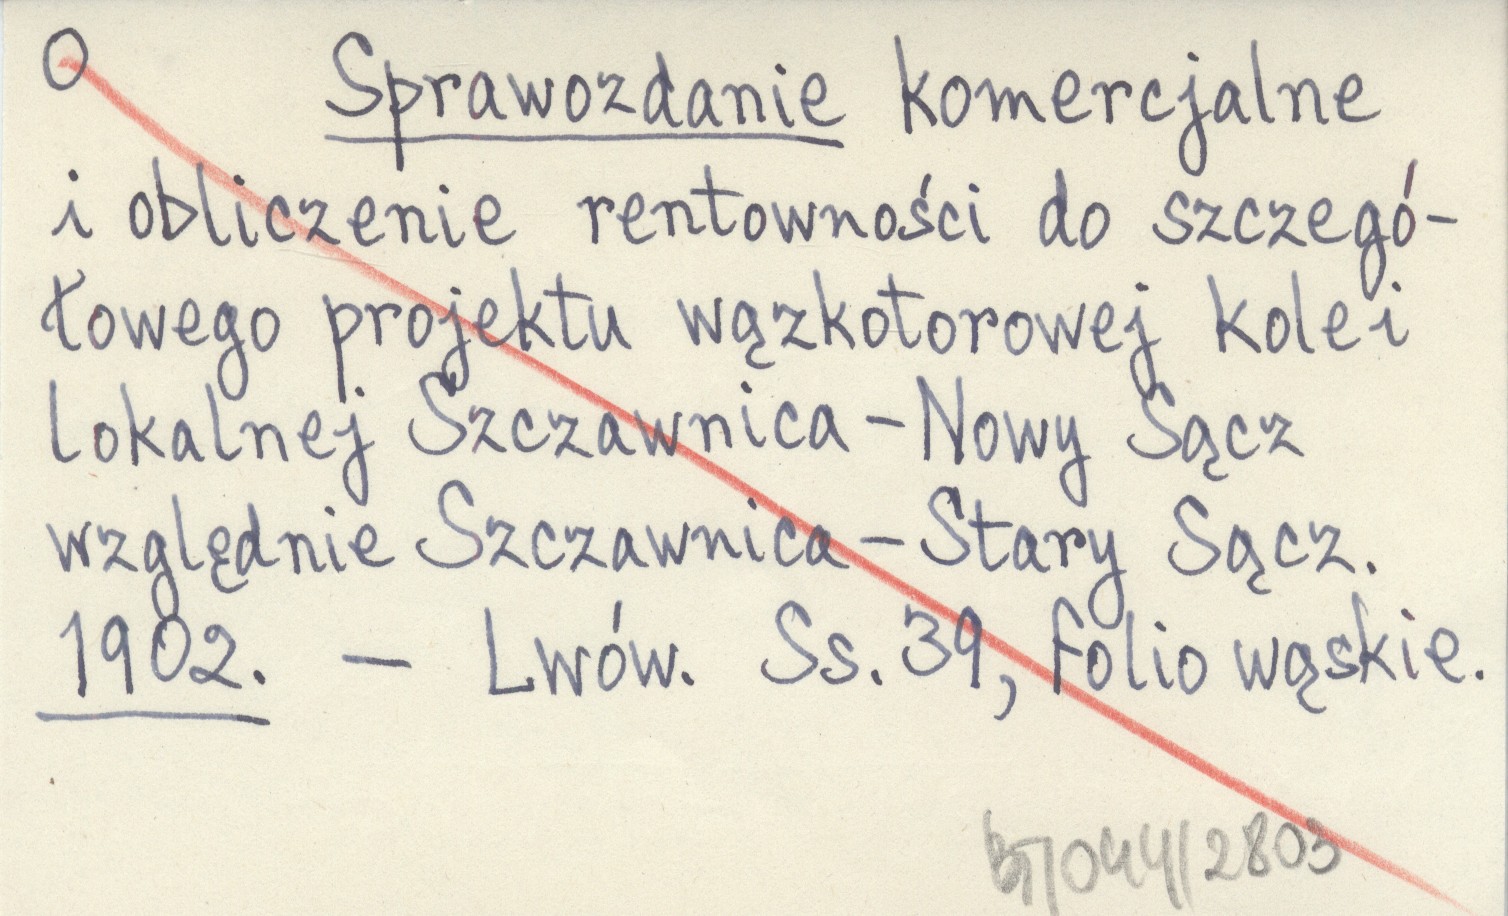 O Sprawozdanie komercjalne
i obliczenie rentowności do szczegó-
łowego projektu wązkotorowej kolei
lokalnej Szczawnica - Nowy Sącz
względnie Szczawnica - Stary Sącz.
1902. - Lwów. Ss. 39, folio wąskie.
044/2803